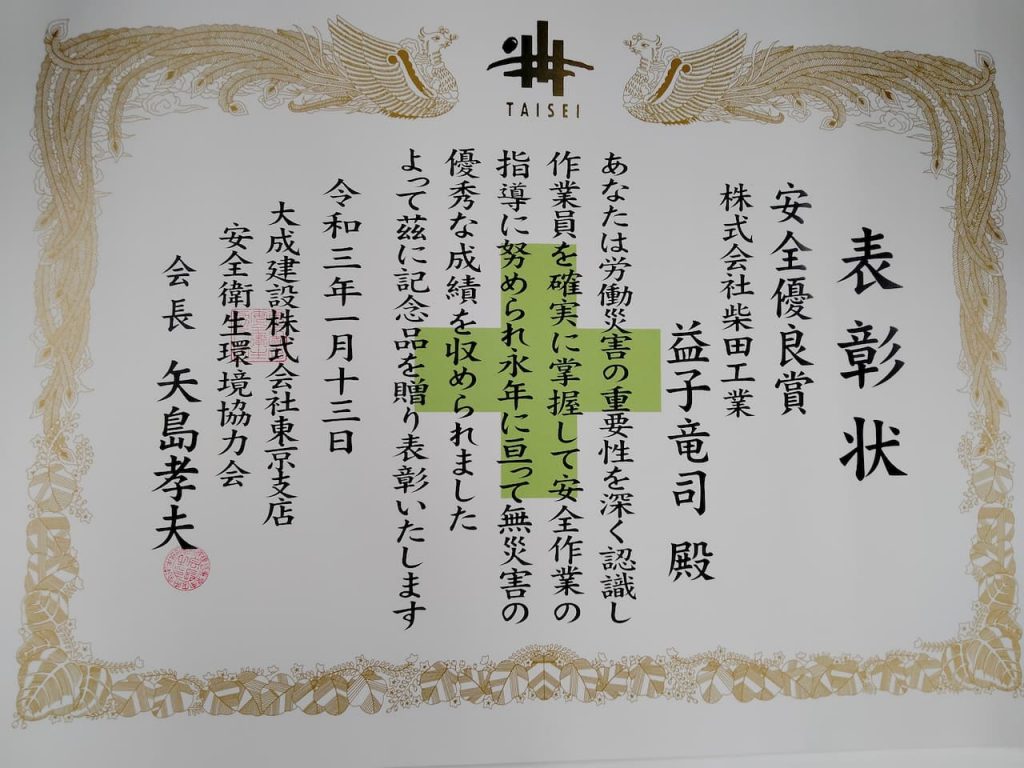 TAISEI
表彰状
安全優良賞
株式会社柴田工業
益子竜司 殿
あなたは労働災害の重要性を深く認識し
作業員を確実に掌握して安全作業の
指導に努められ永年に亘って無災害の
優秀な成績を収められました
よって茲に記念品を贈り表彰いたします
令和三年一月十三日
大成建設株式会社東京支店
安全衛生環境協力会
会長 矢島孝夫